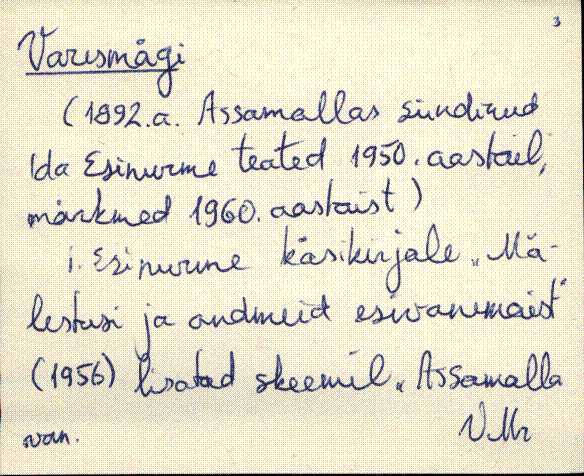 3
Varesmägi
(1892.a. Assamallas sündinud
Ida Esinurme teated 1950. aastail,
märkmed 1960. aastaist)
I. Esinurme käsikirjale „Mä-
lestusi ja andmeid esivanemaist"
(1956) lisatud skeemil „Assamalla